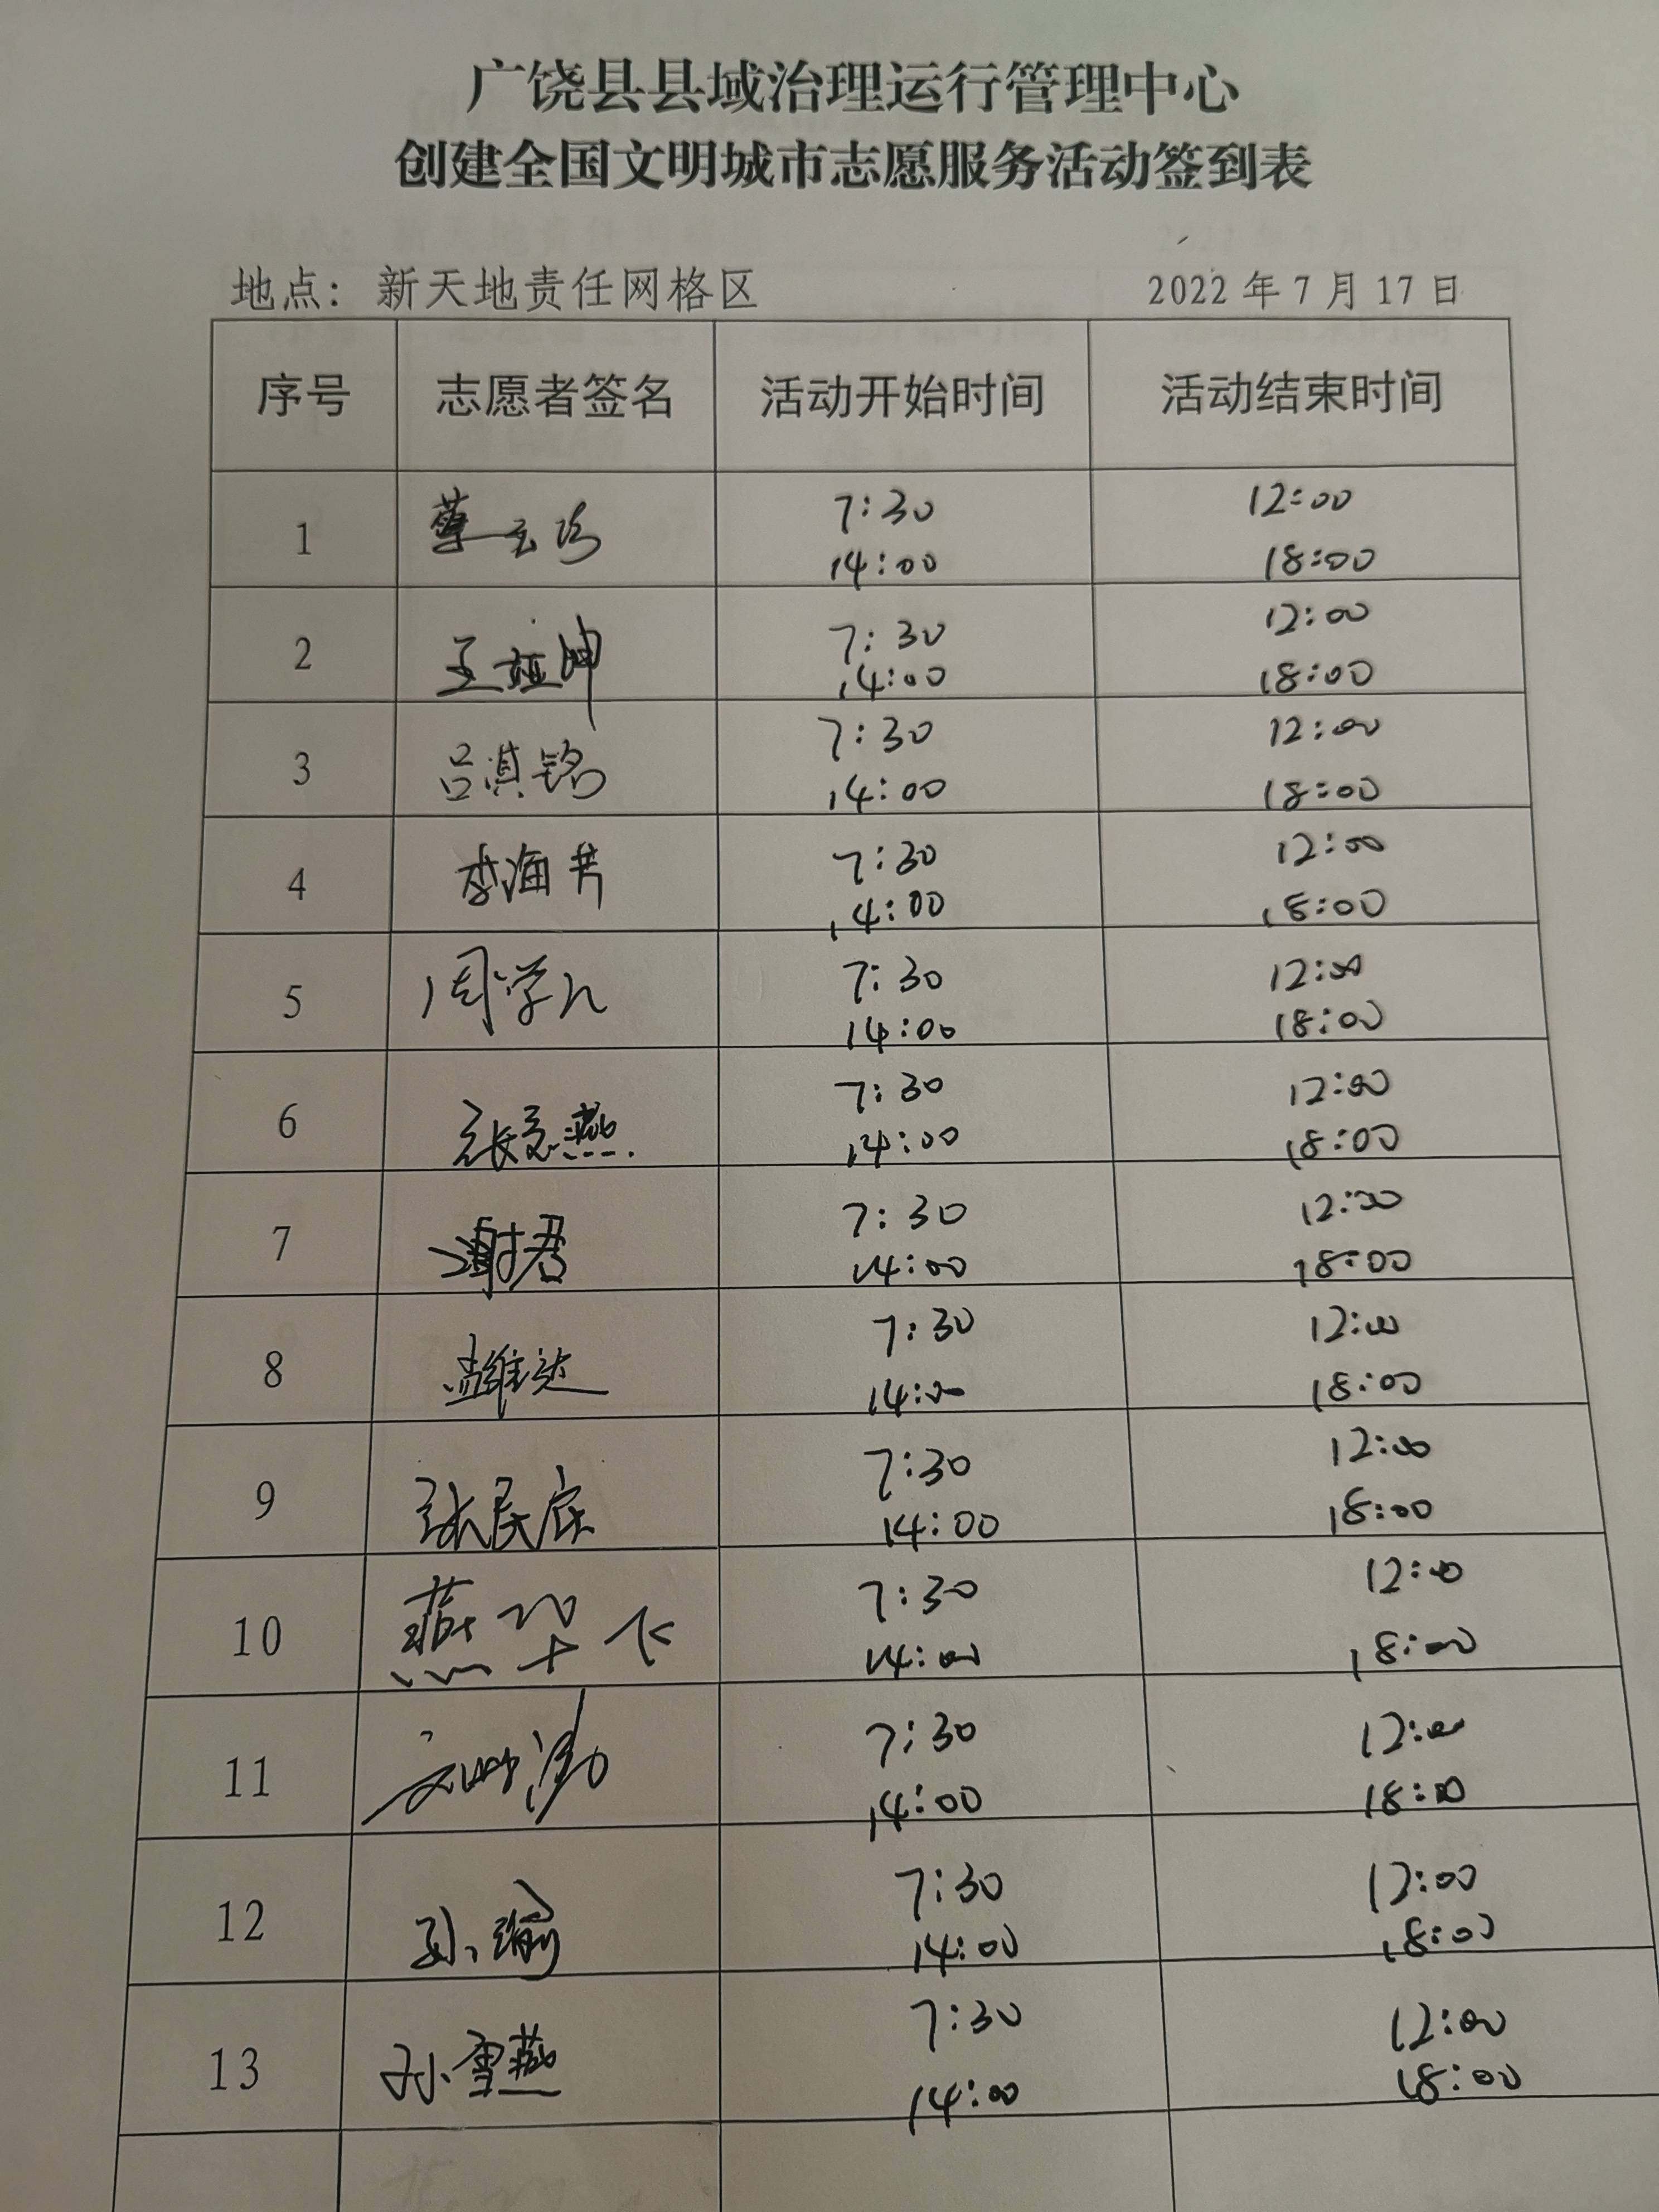 广饶县县域治理运行管理中心
创建全国文明城市志愿服务活动签到表
地点：新天地责任网格区 2022年7月17日
序号 志愿者签名 活动开始时间 活动结束时间
1 7:30 12:00
14:00 18:00
2 王娅坤 7:30 12:00
14:00 18:00
3 吕淇铭 7:30 12:00
14:00 18:00
4 李海芳 7:30 12:00
14:00 18:00
5 周学 7:30 12:00
14:00 18:00
6 张燕 7:30 12:00
14:00 18:00
7 谢君 7:30 12:00
14:00 18:00
8 孟维达 7:30 12:00
14:00 18:00
9 张民庆 7:30 12:00
14:00 18:00
10 燕 7:30 12:00
14:00 18:00
11 7:30 12:00
14:00 18:00
12 孙瑜 7:30 12:00
14:00 18:00
13 孙雪燕 7:30 12:00
14:00 18:00